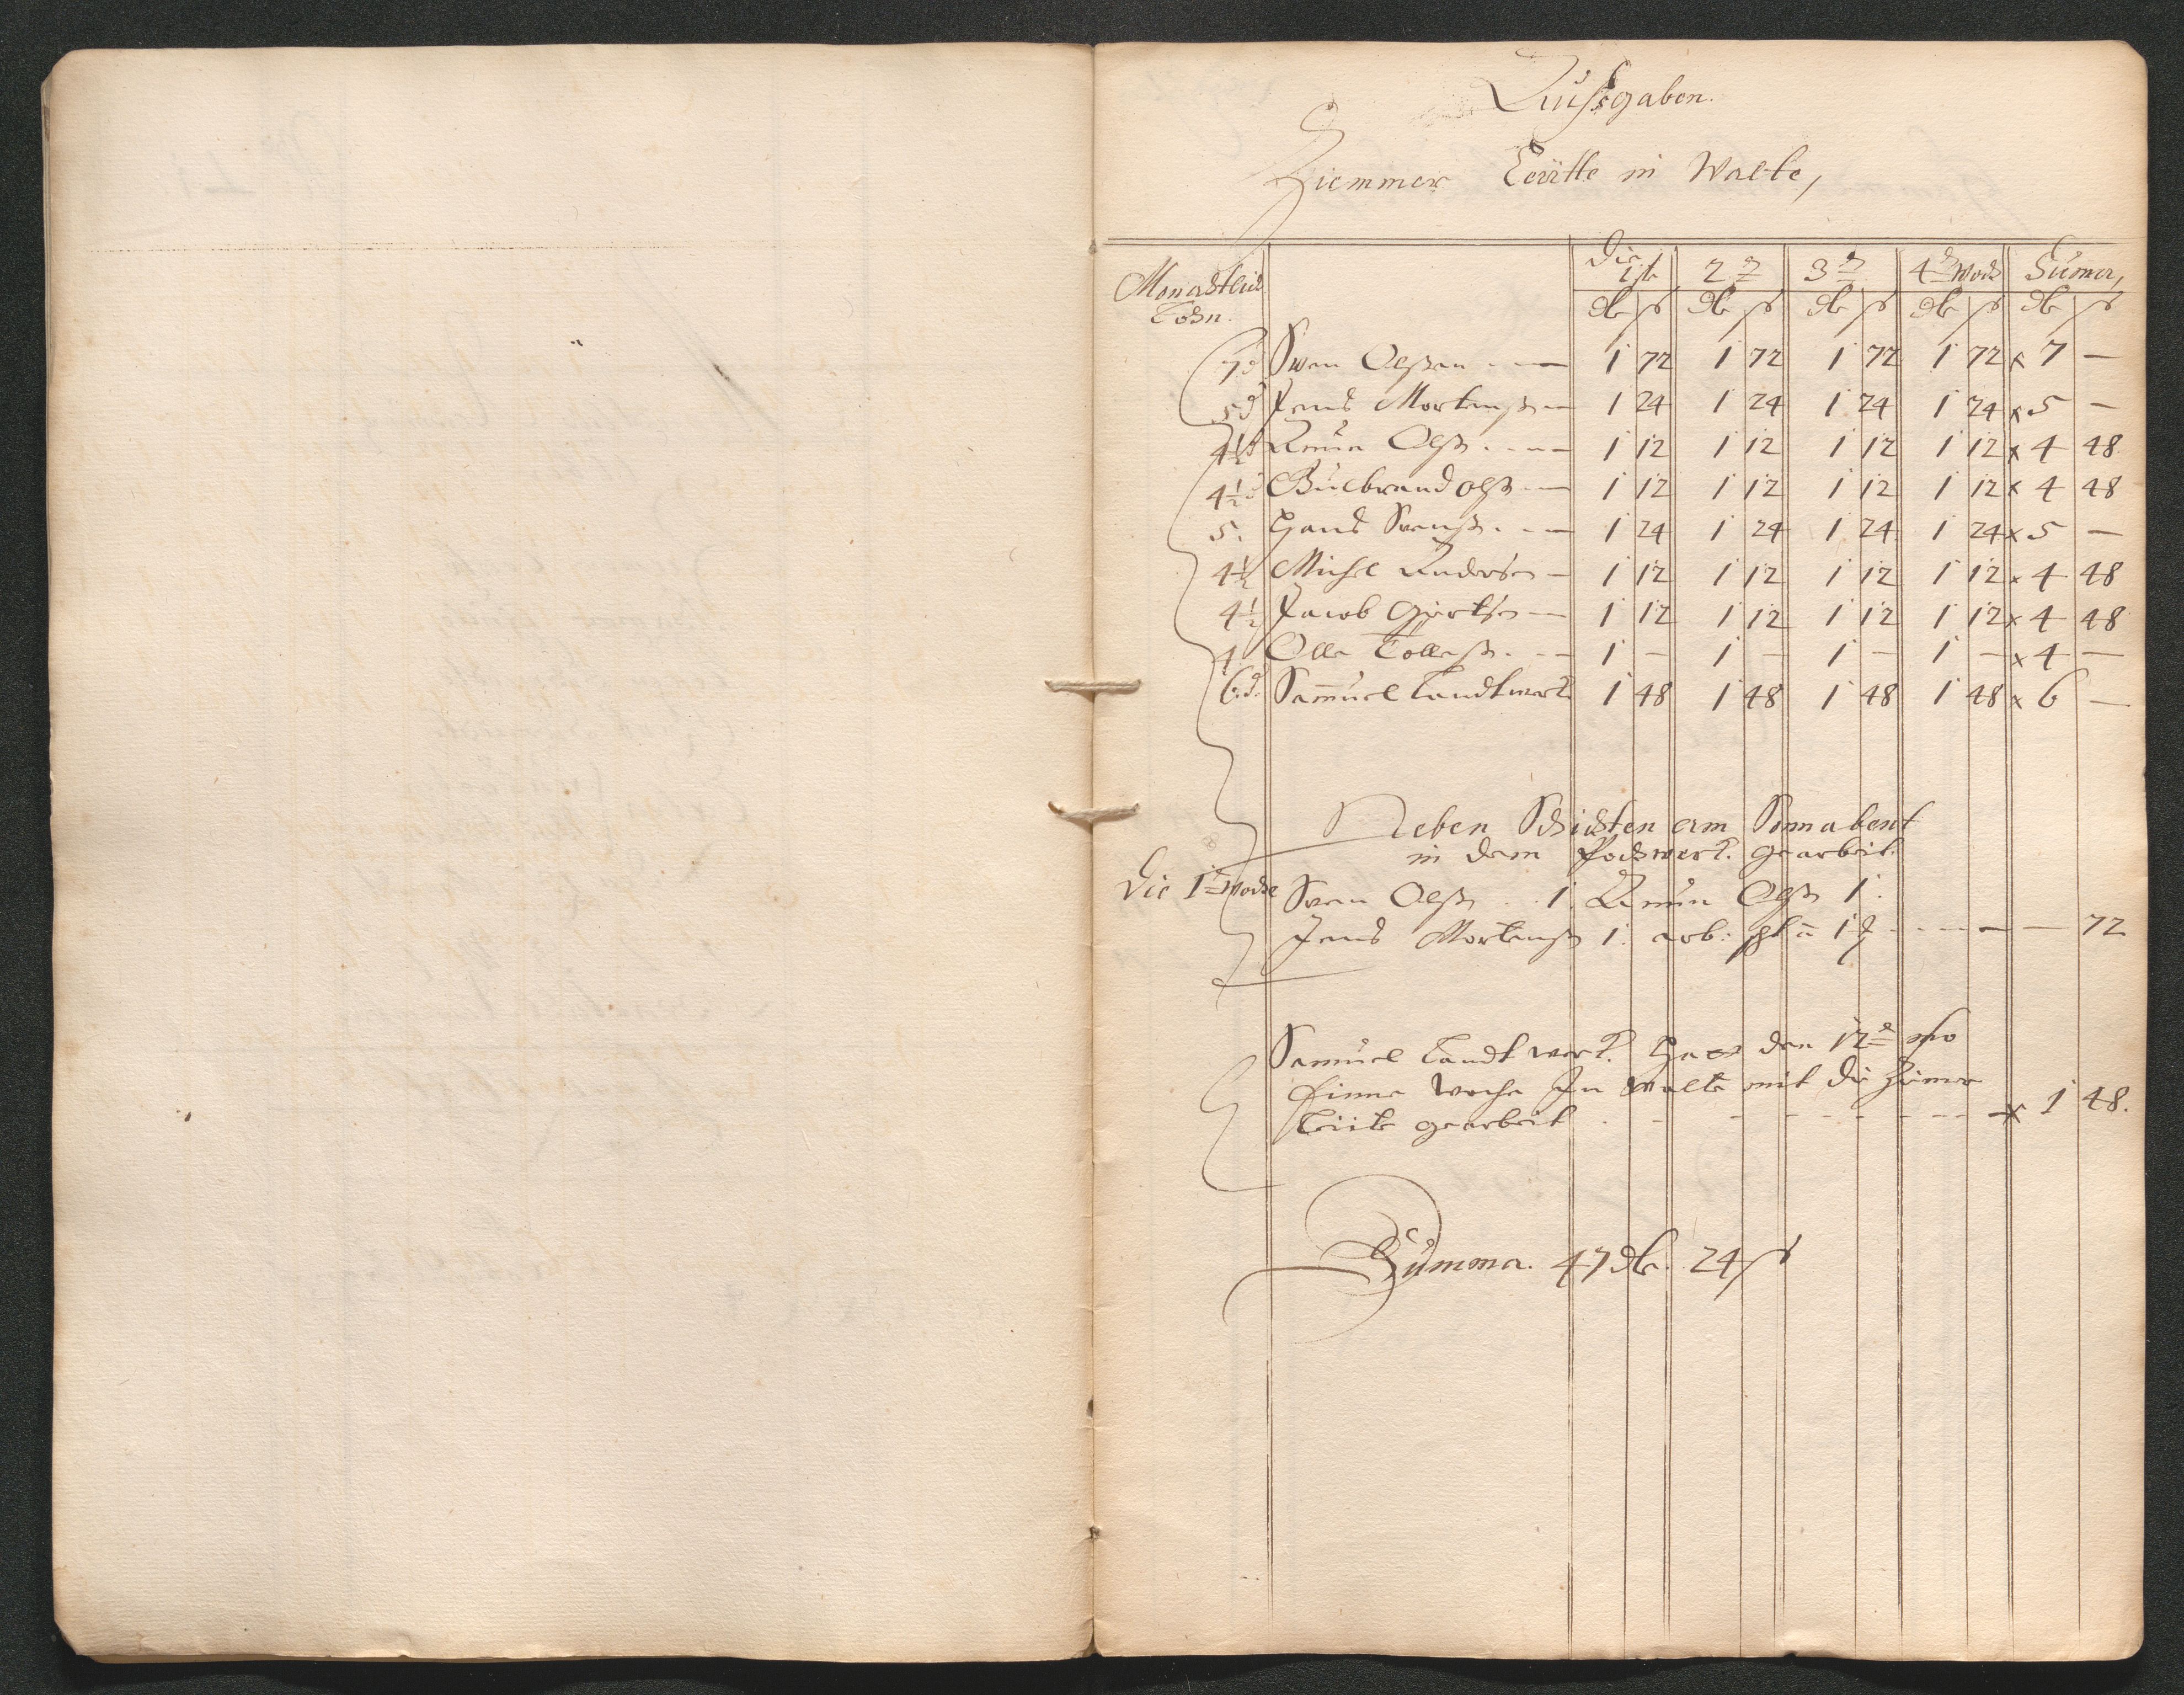 Aussgaben.
Ziemmer Leütte in Walte,
Monadtlich Lohn. Die 1ste 2te 3te 4te Woch Suma,
dlr ß dlr ß dlr ß dlr ß dlr ß
7d Swen Olssen 1 72 1 72 1 72 1 72 x 7 —
5d Jens Mortenss 1 24 1 24 1 24 1 24 x 5 —
4½d Amun Olss 1 12 1 12 1 12 1 12 x 4 48
4½d Gulbrand olss 1 12 1 12 1 12 1 12 x 4 48
5. Hans Svenss 1 24 1 24 1 24 1 24 x 5 —
4½ Michel Andersen 1 12 1 12 1 12 1 12 x 4 48
4½ Jacob Giertsen 1 12 1 12 1 12 1 12 x 4 48
4 Olle Tolless 1 — 1 — 1 — 1 — x 4 —
6d. Samuel Landtwerk 1 48 1 48 1 48 1 48 x 6 —
Neben Schichten am Sonnabent
in dem Pochwerk. gearbeit.
Die 1te Woche Swen Olss 1. Amun Olss 1.
Jens Mortenss 1. arb: a 1 72
Samuel Landtwerk. Hat den 12te
Einne woche In walte mit die Zimer
leüte gearbeit x 1 48.
Summa. 47 dlr. 24 ß